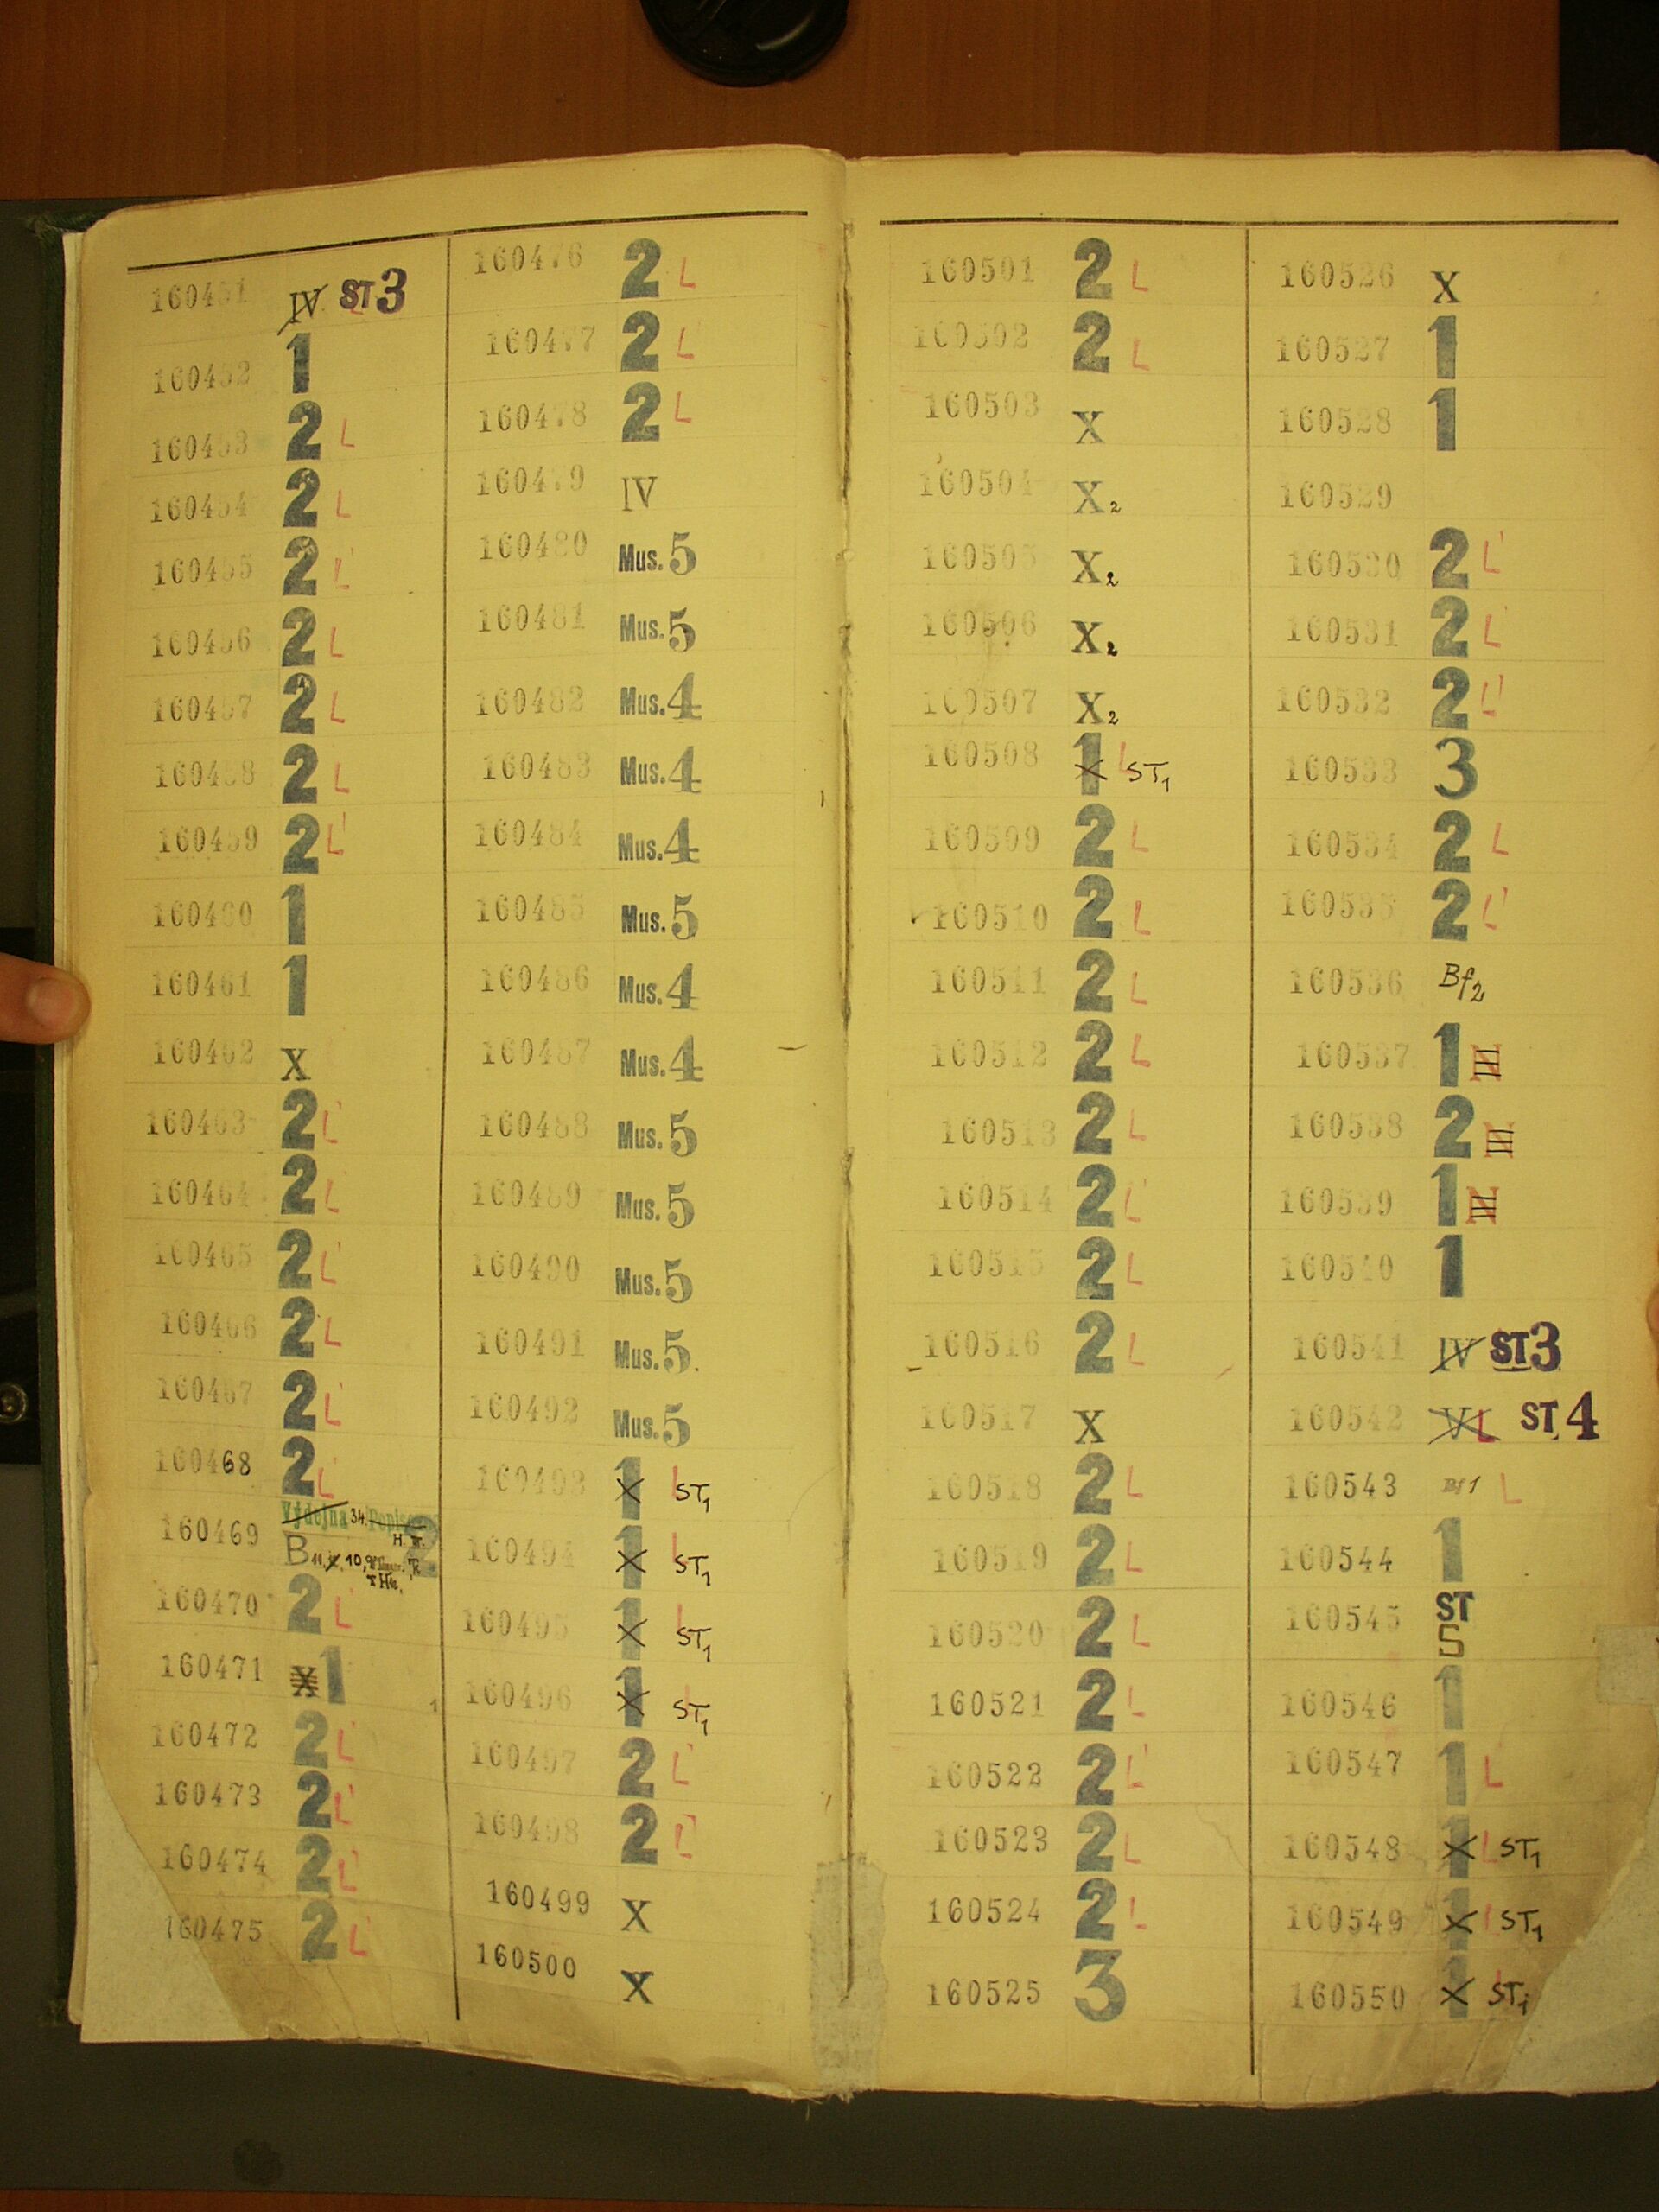 160451 IV ST 3
160452 1
160453 2 L
160454 2 L
160455 2 L
160456 2 L
160457 2 L
160458 2 L
160459 2 L
160460 1
160461 1
160462 X
160463 2 L
160464 2 L
160465 2 L
160466 2 L
160467 2 L
160468 2 L
Výdejna 34
160469 B 11, 10, 2
160470 2 L
160471 X 1
160472 2 L
160473 2 L
160474 2 L
160475 2 L
160476 2 L
160477 2 L
160478 2 L
160479 IV
160480 Mus. 5
160481 Mus. 5
160482 Mus. 4
160483 Mus. 4
160484 Mus. 4
160485 Mus. 5
160486 Mus. 4
160487 Mus. 4
160488 Mus. 5
160489 Mus. 5
160490 Mus. 5
160491 Mus. 5.
160492 Mus. 5
160493 1 X L ST1
160494 1 X L ST1
160495 1 X L ST1
160496 1 X L ST1
160497 2 L
160498 2 L
160499 X
160500 X
160501 2 L
160502 2 L
160503 X
160504 X2
160505 X2
160506 X2
160507 X2
160508 1 X L ST1
160509 2 L
160510 2 L
160511 2 L
160512 2 L
160513 2 L
160514 2 L
160515 2 L
160516 2 L
160517 X
160518 2 L
160519 2 L
160520 2 L
160521 2 L
160522 2 L
160523 2 L
160524 2 L
160525 3
160526 X
160527 1
160528 1
160529
160530 2 L
160531 2 L
160532 2 L
160533 3
160534 2 L
160535 2 L
160536 Bf2
160537 1 N
160538 2 N
160539 1 N
160540 1
160541 IV ST 3
160542 V L ST. 4
160543 Bf 1 L
160544 1
160545 ST
5
160546 1
160547 1 L
160548 1 X L ST1
160549 1 X L ST1
160550 1 X L ST1